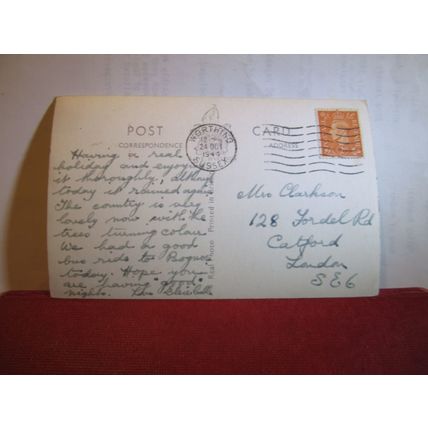 POST CARD
CORRESPONDENCE ADDRESS
WORTHING
24 OCT
SUSSEX
Having a real
holiday and enjoying
it thoroughly, although
today it rained again
The country is very
lovely now with the
trees turning colour
We had a good
bus ride to Bognor
today. Hope you
are having "good"
nights.
Real Photo Printed in
Mrs Clarkson
128 Fordel Rd
Catford
London
S E 6